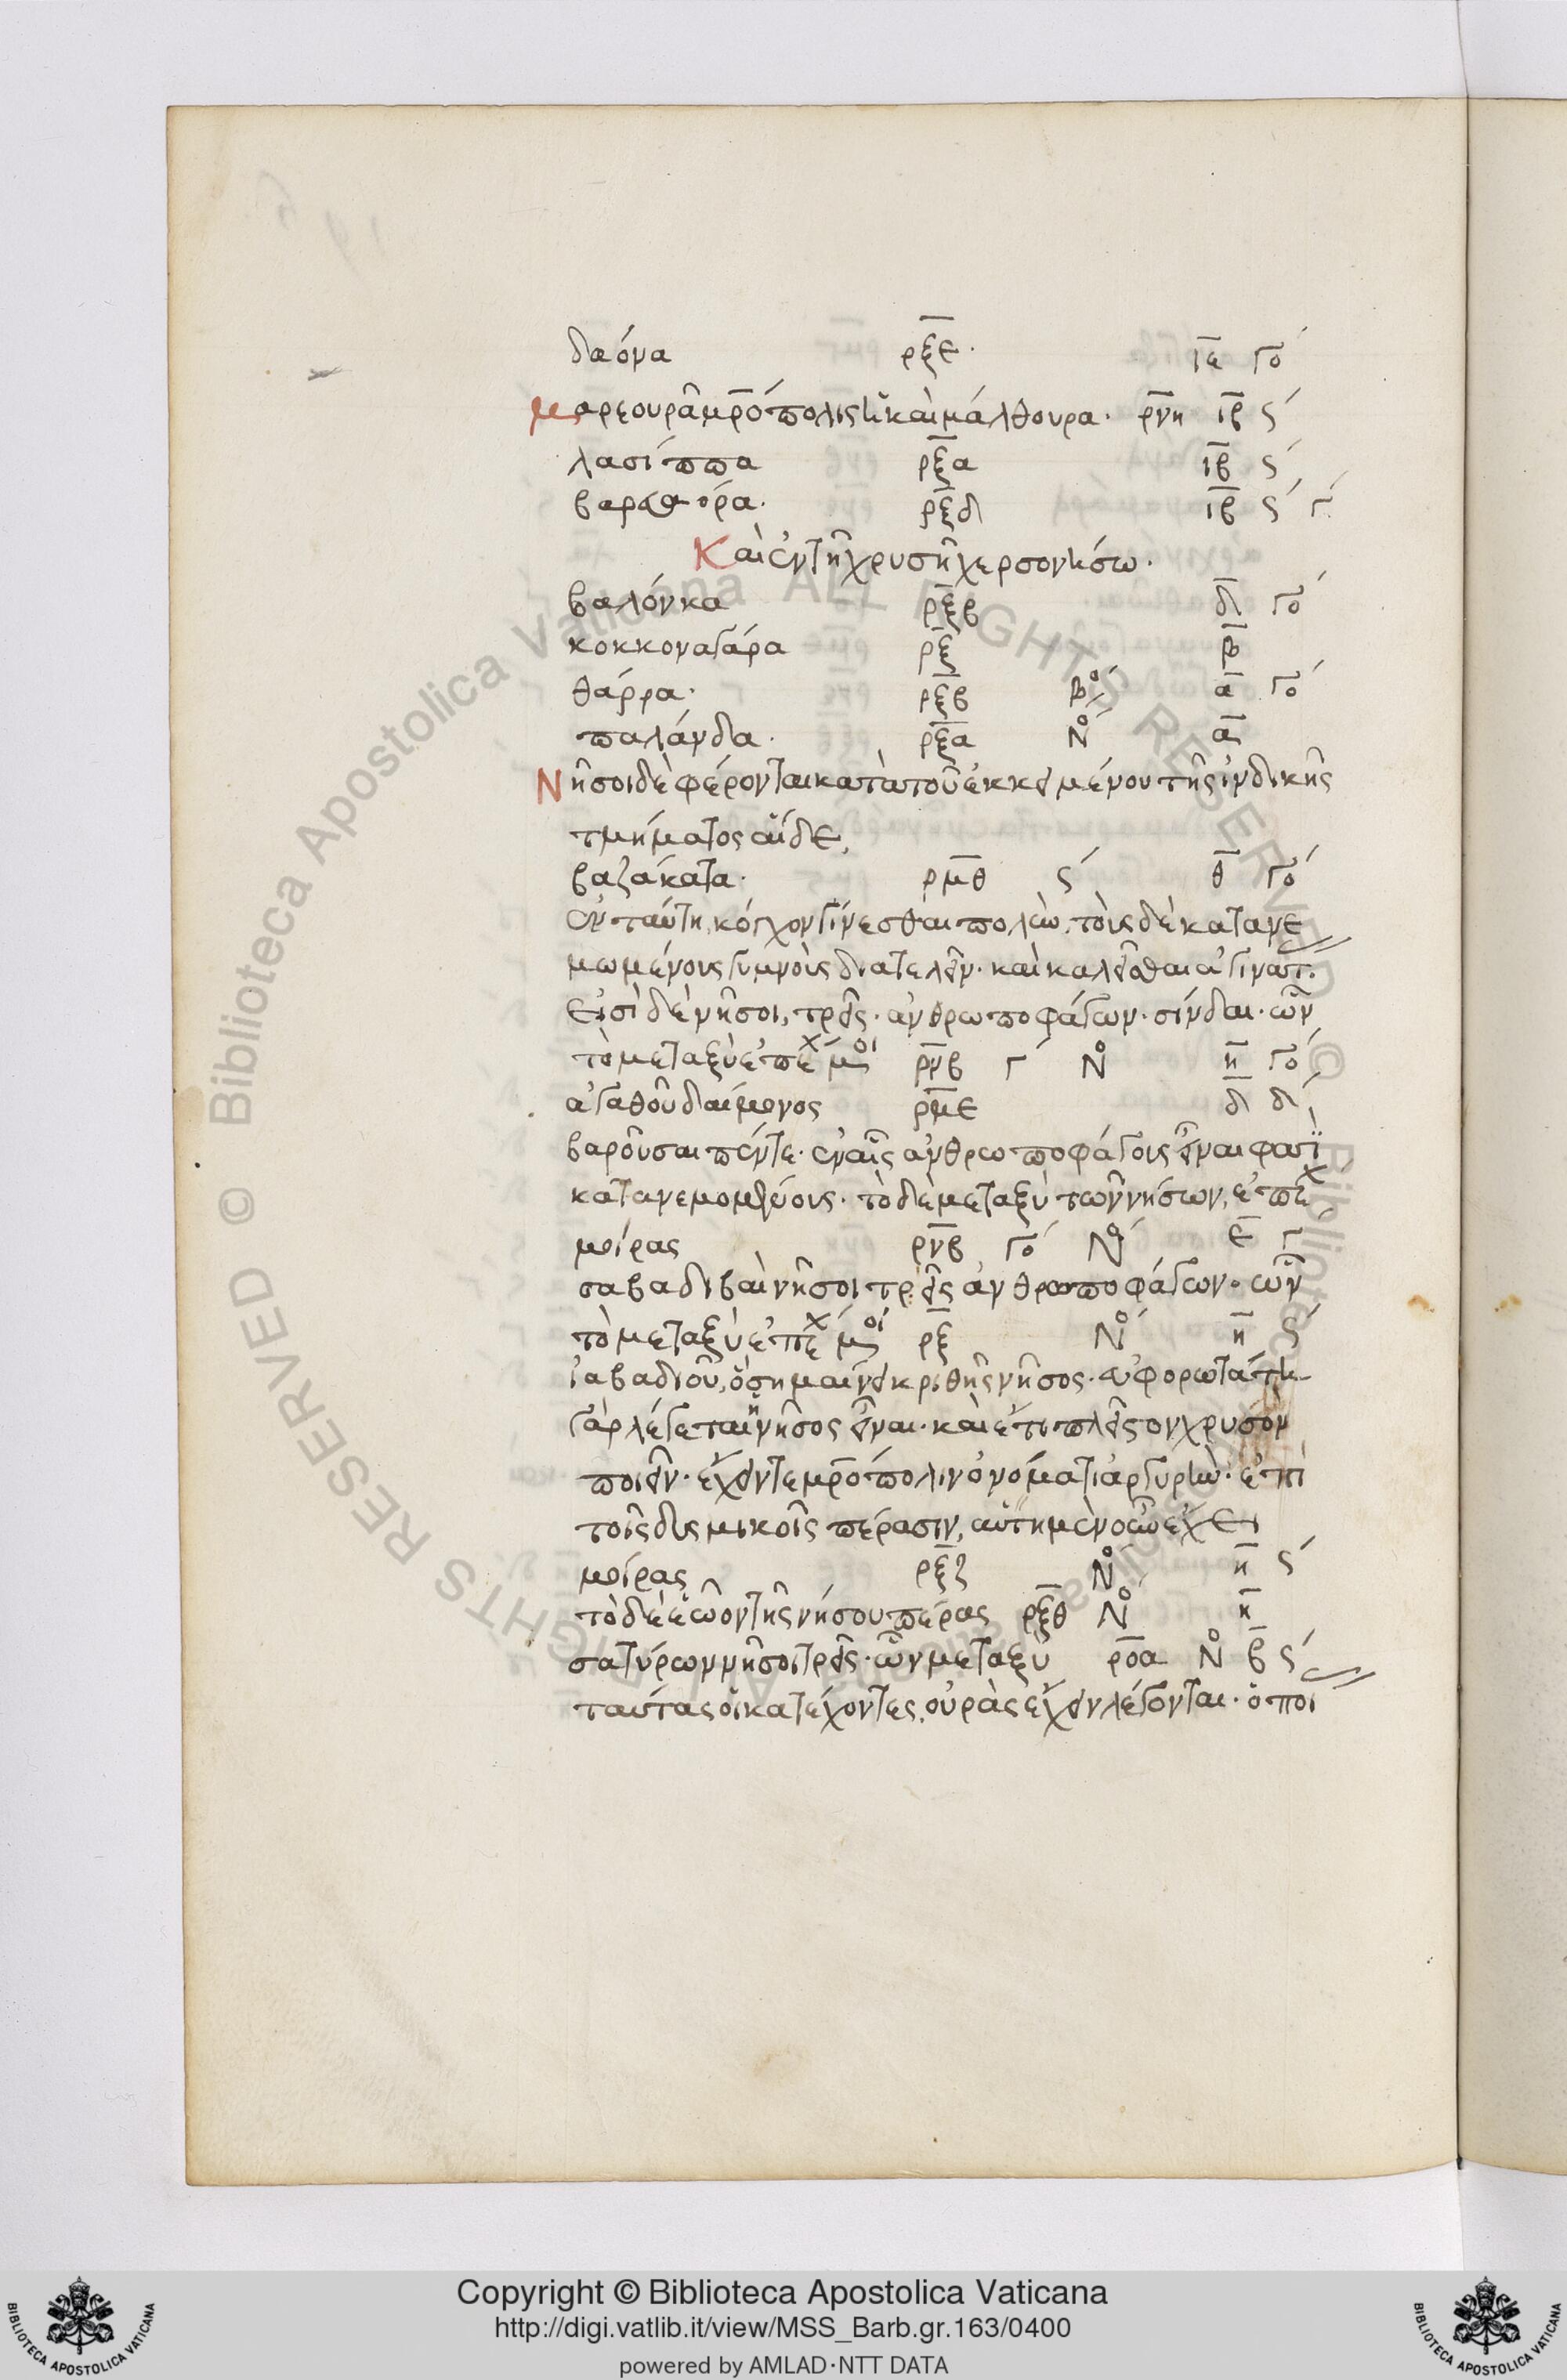 δαόνα ρξε· ιε γο´
μαρεουρα μρόπολις ἡ καὶ μάλθουρα· ρνη ιβ ς´
λασίππα ρξα ιβ ς´
βαρευαόρα· ρξδ ιβ ς´ γ´
Καὶ ἐν τῆ χρυσῆ χερσονήσω·
βαλόνκα ρξβ δ γο´
κοκκοναγάρα ρξ β
θάρρα· ρξβ βο´ α γο´
παλάνδα· ρξα Νο´ α
Νῆσοι δὲ φέρονται κατὰ τοῦ ἐκκειμένου τῆς ἰνδικῆς
τμήματος αἵδε,
βαζάκατα· ρμθ ς´ θ γο´
ἐν ταύτη κόγχον γίνεσθαι πολὺν, τοὺς δὲ κατανε
μωμένους γυμνοὺς διατελεῖν· καὶ καλεῖσθαι ἀγινάτ·
εἰσὶ δὲ νῆσοι, τρεῖς· ἀνθρωποφάγων· σίνδαι· ὧν
τὸ μεταξὺ ἐπέχ μοι ρνβ γ´ Νο η γο´
ἀγαθοῦ δαίμονος ρμε δ δ´
βαροῦσαι πέντε· ἐν αἷς ἀνθρωποφάγοις εἶναι φασὶ
κατανεμομένους· τὸ δὲ μεταξὺ τῶν νήσων, ἐπέχ
μοίρας ρνβ γο´ Νο´ ε γ´
σαβαδιβαὶ νῆσοι τρεῖς ἀνθρωποφάγων· ὧν
τὸ μεταξὺ ἐπέχ μοι ρξ Νο´ η ς´
ἰαβαδιοῦ, ὃ σημαίνει κριθῆς νῆσος· εὐφορωτάτη
γὰρ λέγεται ἡ νῆσος εἶναι· καὶ ἔτι πλεῖστον χρυσὸν
ποιεῖν· ἔχειν τε μρόπολιν ὀνόματι ἀργυρὴν· ἐπὶ
τοῖς δυσμικοῖς πέρασιν, αὕτη μὲν οὖν ἔχει
μοίρας ρξζ Νο´ η ς´
τὸ δὲ ἑῶον τῆς νήσου πέρας ρξθ Νο´ η
σατύρων νῆσοι τρεῖς· ὧν μεταξὺ ροα Νο β ς´
ταύτας οἱ κατέχοντες, οὐρὰς ἔχειν λέγονται· ὁποί
Copyright © Biblioteca Apostolica Vaticana
http://digi.vatlib.it/view/MSS_Barb.gr.163/0400
powered by AMLAD·NTT DATA